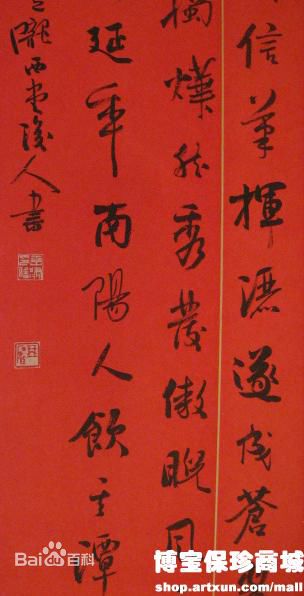 信筆揮灑遂成蒼
燁然秀發傲睨同
延年南陽人飲其潭
隴西堂後人書
Bai du 百科
博宝保珍商城
shop.artxun.com/mall